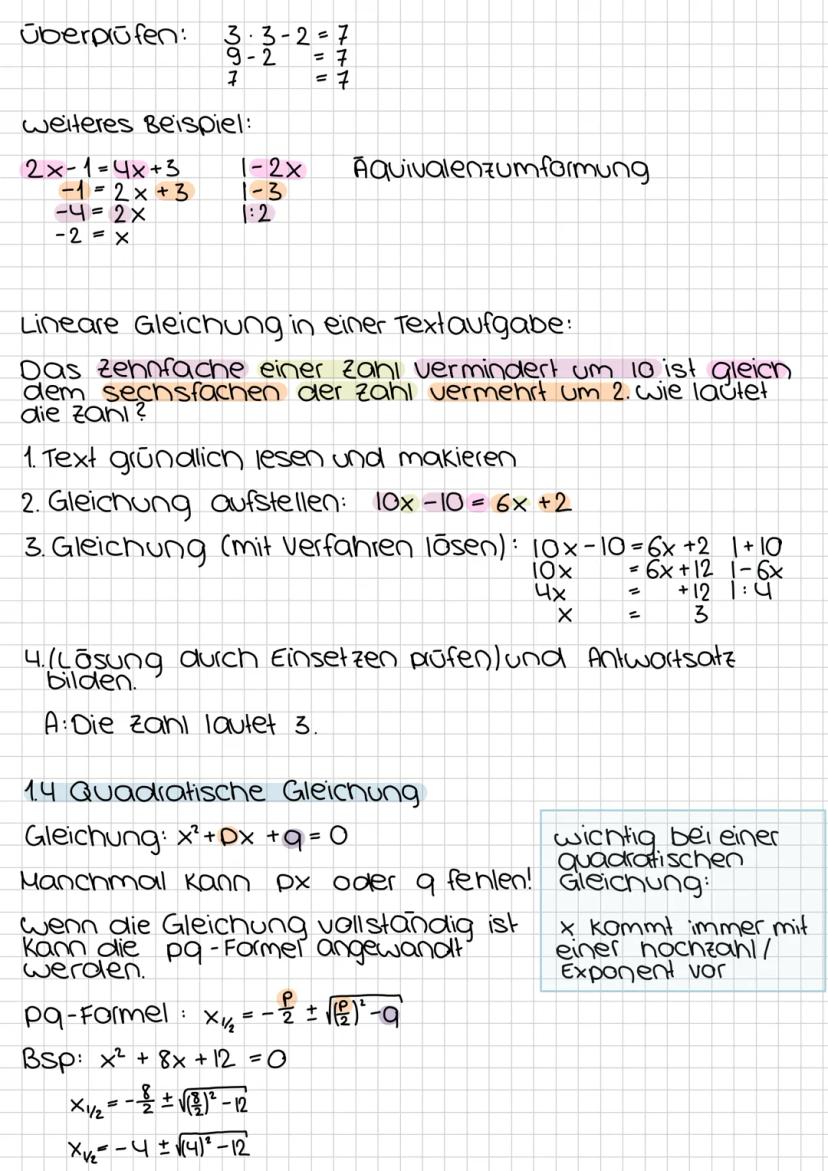 überprüfen: 3 · 3 - 2 = 7
9 - 2 = 7
7 = 7
weiteres Beispiel:
2x - 1 = 4x + 3 | - 2x Äquivalenzumformung
-1 = 2x + 3 | - 3
-4 = 2x | : 2
-2 = x
Lineare Gleichung in einer Textaufgabe:
Das zehnfache einer Zahl vermindert um 10 ist gleich
dem sechsfachen der Zahl vermehrt um 2. Wie lautet
die Zahl?
1. Text gründlich lesen und makieren
2. Gleichung aufstellen: 10x - 10 = 6x + 2
3. Gleichung (mit Verfahren lösen): 10x - 10 = 6x + 2 | + 10
10x = 6x + 12 | - 6x
4x = + 12 | : 4
x = 3
4. (Lösung durch Einsetzen prüfen) und Antwortsatz
bilden.
A: Die Zahl lautet 3.
1.4 Quadratische Gleichung
Gleichung: x² + px + q = 0
Manchmal kann px oder q fehlen!
wenn die Gleichung vollständig ist
kann die pq-Formel angewandt
werden.
wichtig bei einer
quadratischen
Gleichung:
x kommt immer mit
einer hochzahl /
Exponent vor
pq-Formel: x₁/₂ = - p/2 ± √(p/2)² - q
Bsp: x² + 8x + 12 = 0
x₁/₂ = - 8/2 ± √(8/2)² - 12
x₁/₂ = - 4 ± √(4)² - 12